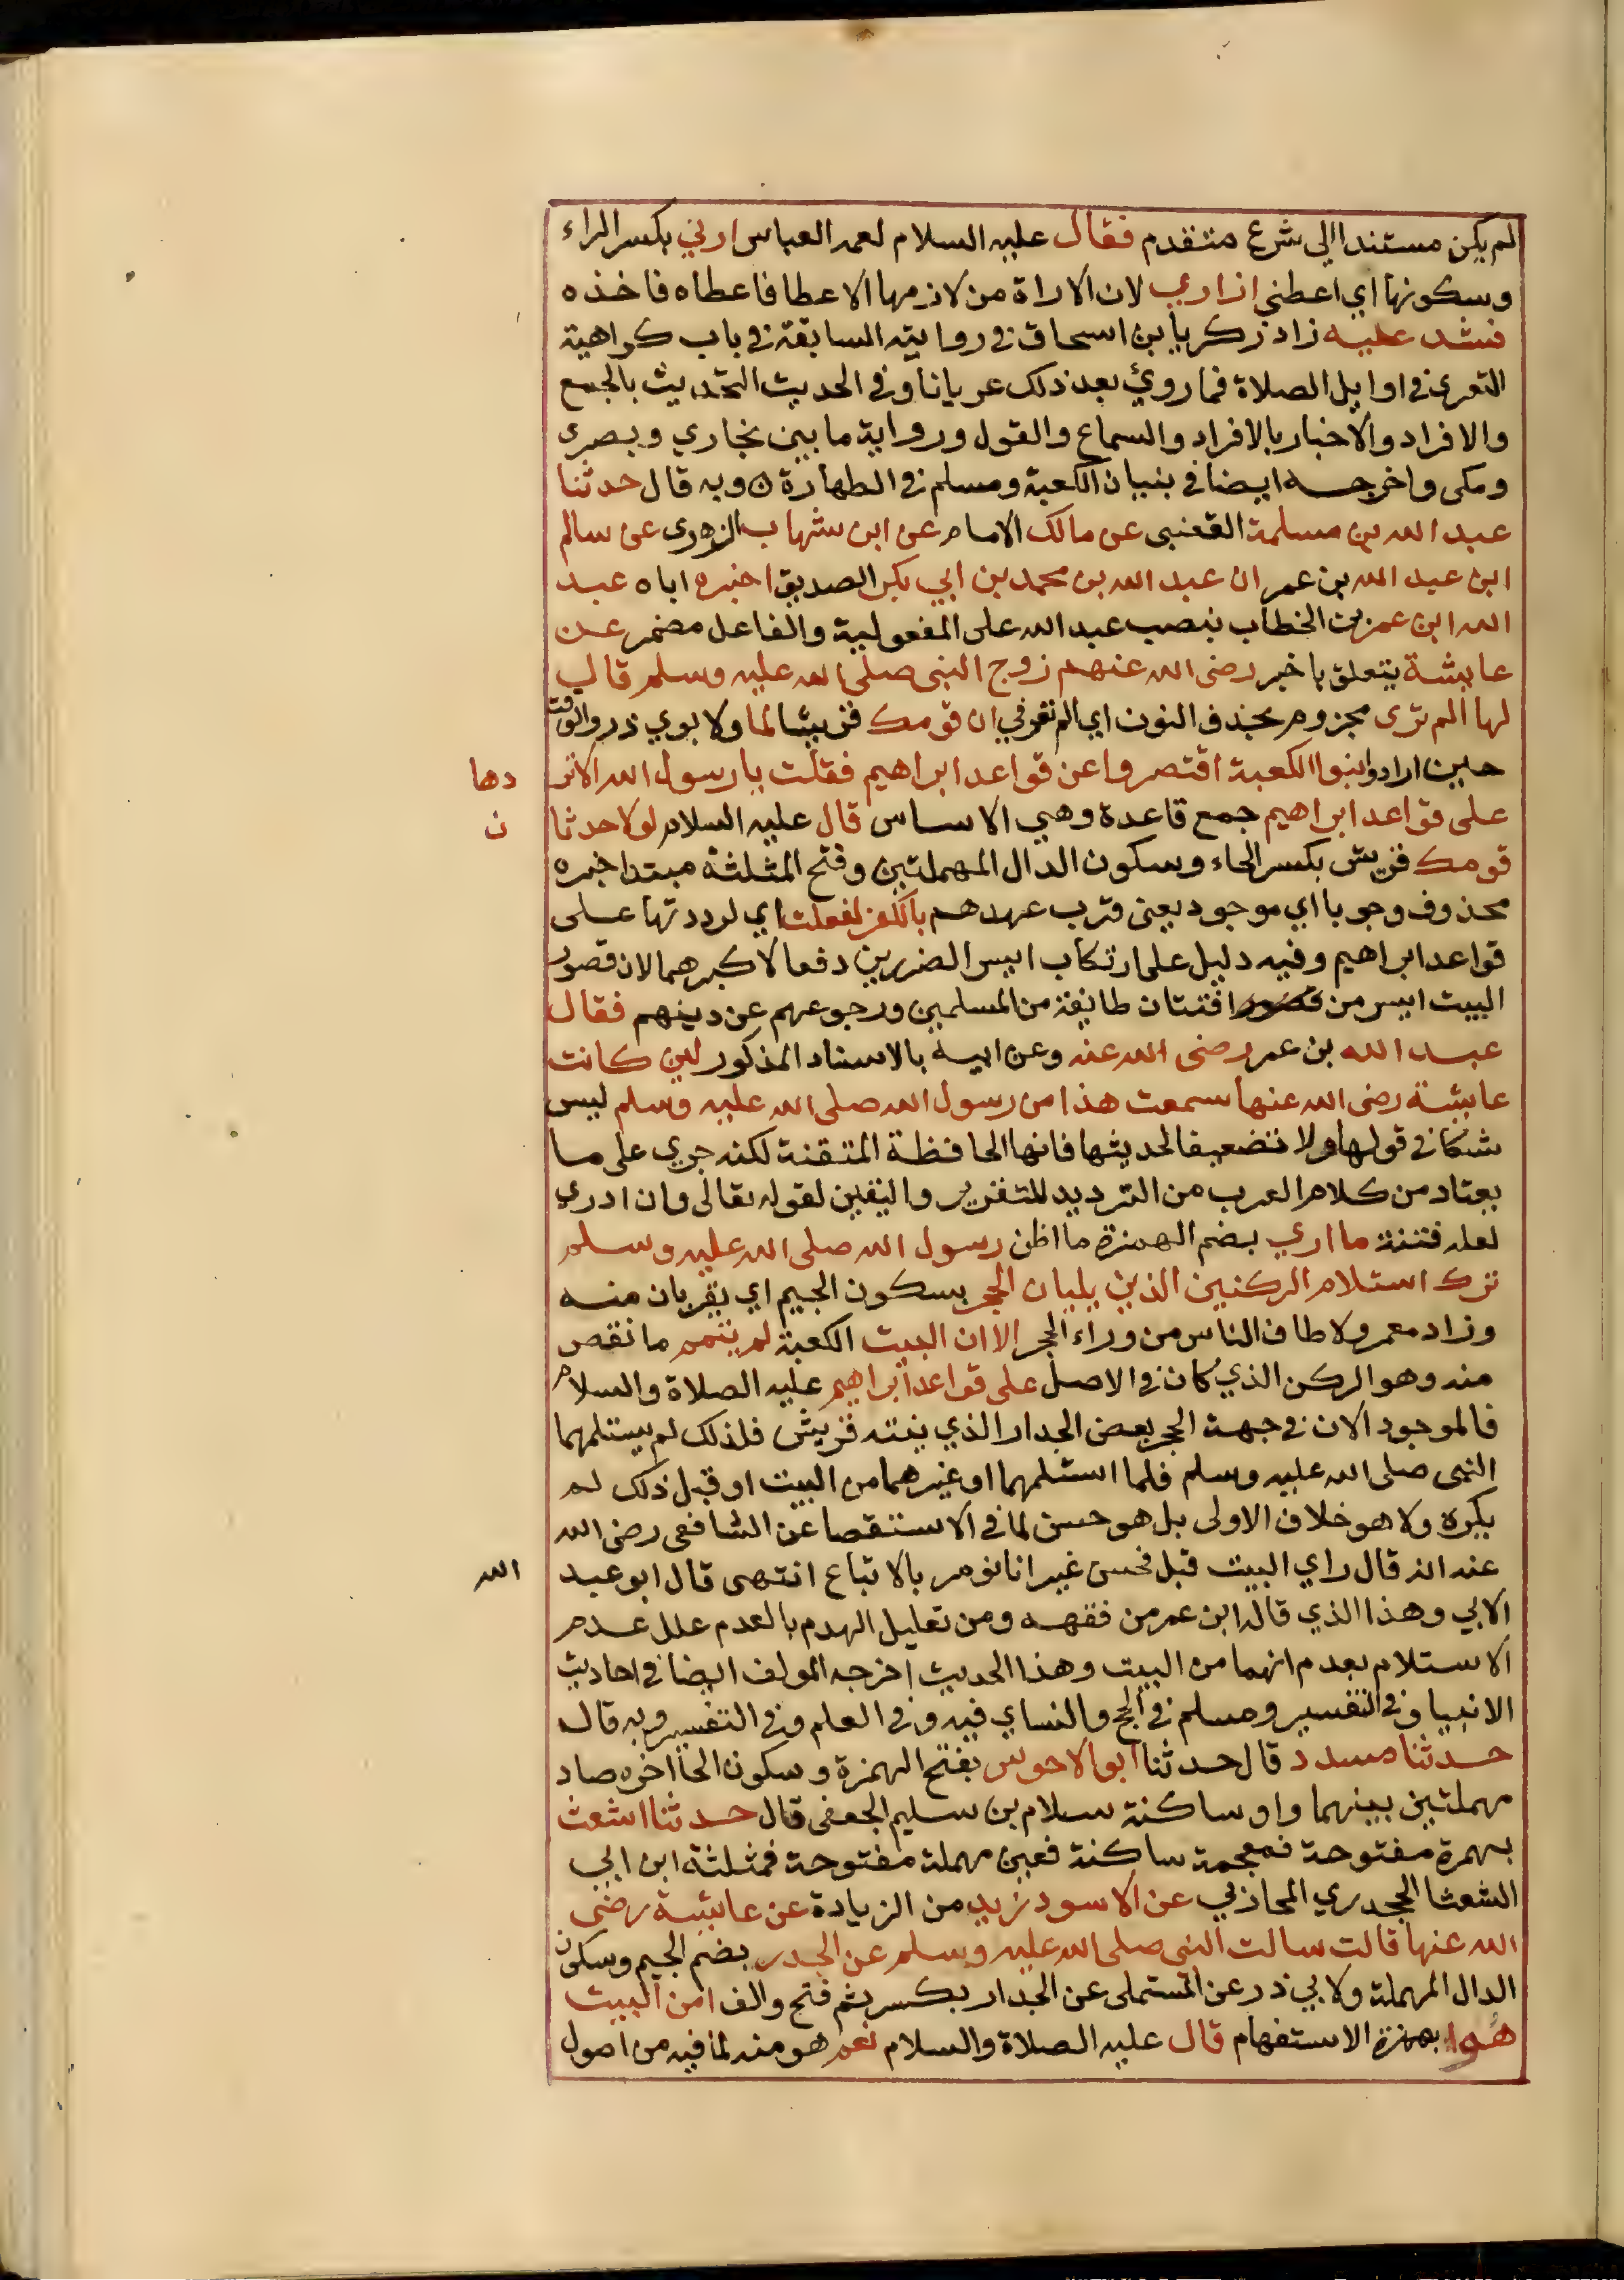 لم يكن مستندا الي شرع متقدم فقال عليه السلام لعمه العباس ارني بكسر الراء
وسكونها اي اعطني ازاري لان الاراة من لازمها الاعطا فاعطاه فاخذه
فشد عليه زاد زكريا بن اسحاق في روايته السابقة في باب كراهية
التعري في اوايل الصلاة فما روئي بعد ذلك عريانا وفي الحديث التحديث بالجمع
والافراد والاخبار بالافراد والسماع والقول ورواية ما بين بخاري وبصري
ومكي واخرجه ايضا في بنيان الكعبة ومسلم في الطهارة ن وبه قال حدثنا
عبد الله بن مسلمة القعنبي عن مالك الامام عن ابن شهاب الزهري عن سالم
ابن عبد الله بن عمر ان عبد الله بن محمد بن ابي بكر الصديق اخبره اباه عبد
الله ابن عمر بن الخطاب بنصب عبد الله على المفعولية والفاعل مضمر عن
عايشة يتعلق باخبر رضي الله عنهم زوج النبي صلى الله عليه وسلم قال
لها الم تري مجزوم بحذف النون اي الم تعرفي ان قومك قريشا لما ولابوي ذر والوقت
حين ارادوا بنوا الكعبة اقتصروا عن قواعد ابراهيم فقلت يا رسول الله الا تر
دها
على قواعد ابراهيم جمع قاعدة وهي الاساس قال عليه السلام لولا حدثا
ن
قومك قريش بكسر الحاء وسكون الدال المهملتين وفتح المثلثة مبتدا خبره
محذوف وجوبا اي موجود يعني قرب عهدهم بالكفر لفعلت اي لرددتها على
قواعد ابراهيم وفيه دليل على ارتكاب ايسر الضررين دفعا لاكبرهما لان قصور
البيت ايسر من افتتان طايفة من المسلمين ورجوعهم عن دينهم فقال
عبد الله بن عمر رضي الله عنه وعن ابيه بالاسناد المذكور لين كانت
عايشة رضي الله عنها سمعت هذا من رسول الله صلى الله عليه وسلم ليس
شكا في قولها ولا تضعيفا لحديثها فانها الحافظة المتقنة لكنه جري على ما
يعتاد من كلام العرب من الترديد للتقرير واليقين لقوله تعالى وان ادري
لعله فتنة ما اري بضم الهمزة ما اظن رسول الله صلى الله عليه وسلم
ترك استلام الركنين الذين يليان الحجر بسكون الجيم اي يقربان منه
وزاد معمر ولا طاف الناس من وراء الحجر الا ان البيت الكعبة لم يتمم ما نقص
منه وهو الركن الذي كان في الاصل على قواعد ابراهيم عليه الصلاة والسلام
فالموجود الان في جهة الحجر بعض الجدار الذي بنته قريش فلذلك لم يستلمهما
النبي صلى الله عليه وسلم فلما استلمهما او غيرهما من البيت او قبل ذلك لم
يكره ولا هو خلاف الاولى بل هو حسن لما في الاستقصا عن الشافعي رضي الله
عنه انه قال راي البيت قبل فحسن غير انا نومر بالاتباع انتهى قال ابو عبد
الله
الابي وهذا الذي قاله ابن عمر من فقهه ومن تعليل الهدم بالعدم علل عدم
الاستلام بعدم انهما من البيت وهذا الحديث اخرجه المولف ايضا في احاديث
الانبيا وفي التفسير ومسلم في الحج والنساي فيه وفي العلم وفي التفسير وبه قال
حدثنا مسدد قال حدثنا ابو الاحوص بفتح الهمزة وسكون الحا اخره صاد
مهملتين بينهما واو ساكنة سلام بن سليم الجعفي قال حدثنا اشعث
بهمزة مفتوحة فمعجمة ساكنة فعين مهملة مفتوحة فمثلثة ابن ابي
الشعثا الجحدري المحاذبي عن الاسود زيد من الزيادة عن عايشة رضي
الله عنها قالت سالت النبي صلى الله عليه وسلم عن الجدر بضم الجيم وسكون
الدال المهملة ولابي ذر عن المستملي عن الجدار بكسر ثم فتح والف امن البيت
هو بهمزة الاستفهام قال عليه الصلاة والسلام نعم هو منه لما فيه من اصول